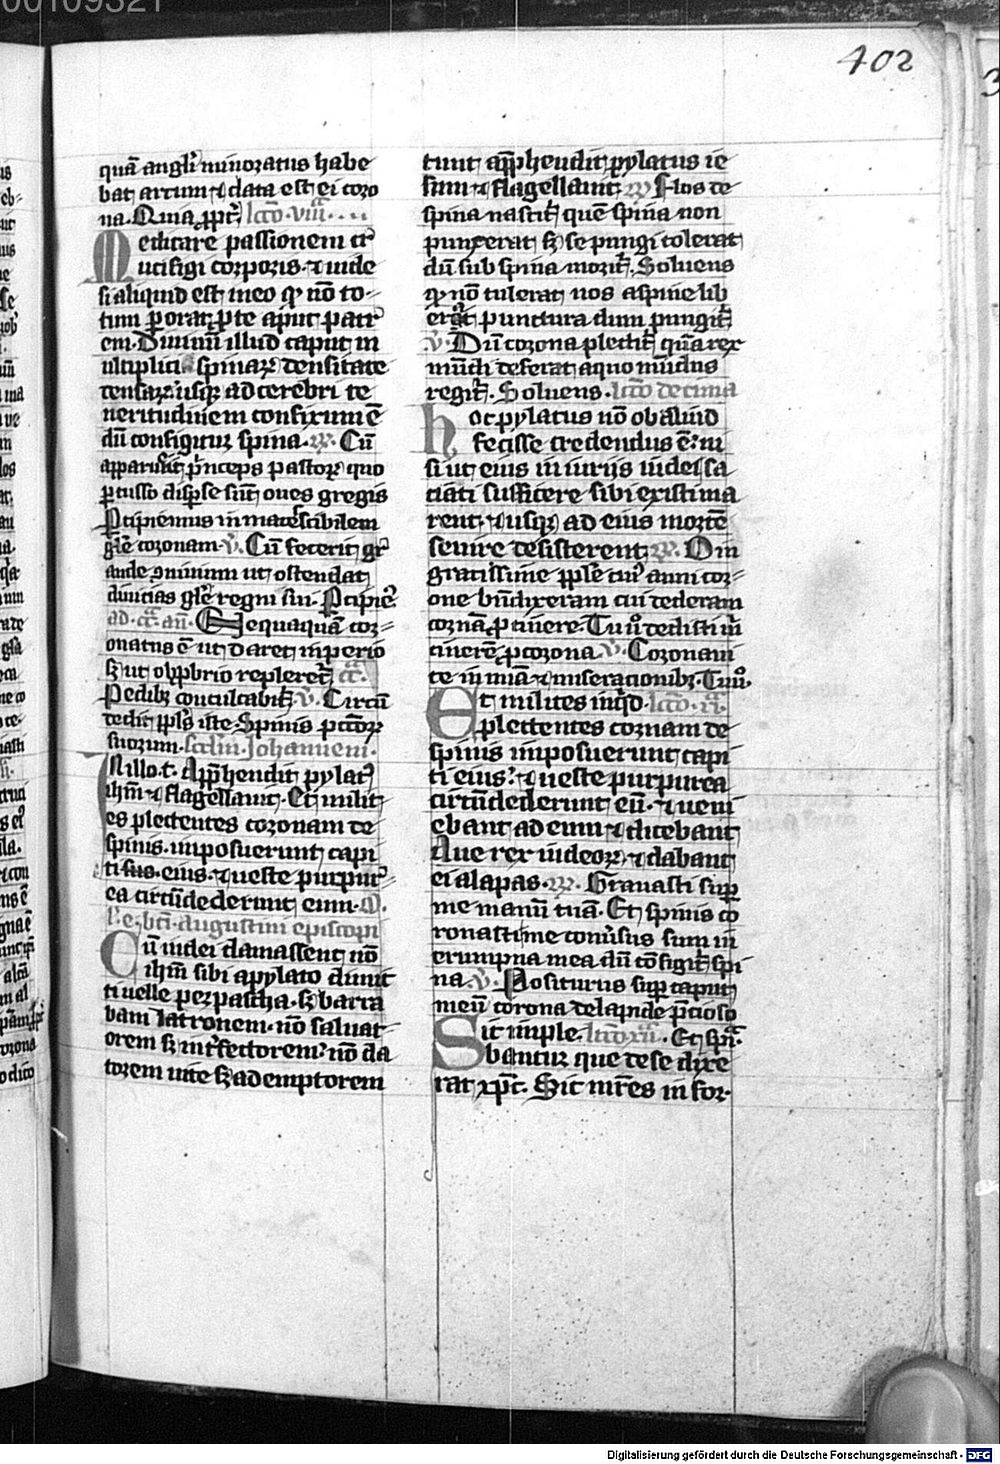 402
quā angl'i minoratus habe
bat artum ⁊ data est ei coro
na. Quia ppt' lcc̄o. viii...
Meditare passionem cr
ucifigi corporis ⁊ uide
si aliquid est in eo qđ nō to-
tum p̄ orat; p̄ te aput patr
em. Diuinū illud caput m
ultiplici spinaꝝ densitate
densaꝝ usqꝫ ad cerebri te
neritudinem confixum ē
dū configitur spina. ꝶ. Cū
apparuit p̄nceps pastoꝝ quo
ꝑcusso disp̄se sūt oues gregis
Pcipiemus inmarcescibilem
gl'e coronam. ℣. Cū fecerit gr
ande ꝯuiuium ut ostendat
diuicias gl'e regni sui. Pcipie.
ad. cā. an. Nequaquā cor-
onatus ē ut daret imperio
sꝫ ut obp̄brio repleret'
Pedibꝫ conculcabit'. ℣. Circū
dedit pp̄ls iste Spinis pctōꝝ
suorum. scđm Johannem.
In illo. t. App̄hendit pylat'
ihm̄ ⁊ flagellauit. Et milit
es plectentes coronam de
spinis. imposuerunt capi
ti eius. ⁊ ueste purpur-
ea circūdederunt eum.
be. bt̄i. Augustini episcopi
Cū iudei clamassent nō
ihm̄ sibi a pylato dimit
ti uelle per pascha. sꝫ barra
bam latronem. nō saluat
orem sꝫ int'fectorem. nō da
torem uite sꝫ ademptorem
tunc app̄hendit pylatus ie
sum ⁊ flagellauit. ꝶ Flos de
spina nascit' quē spina non
punxerat sꝫ se pungi tolerat
dū sub spina morit'. Soluens
qđ nō tulerat nos a spine lib
erat punctura dum pungit'
℣. Dū corona plectit' quā rex
mūdi deferat a quo mūdus
regit'. Soluens. lcc̄o decima
Hoc pylatus nō ob aliud
fecisse credendus ē. ni
si ut eius iniuriis iudei sa
ciati sufficere sibi existima
rent. ⁊ usqꝫ ad eius mortē
seuire desisterent. ꝶ. Om
gratissime
one bn̄dixeram cui dederam
Coronam
te in mīa ⁊ miserationibꝫ.
Et milites inqđ. lcc̄o. xi.
plectentes coronam de
spinis imposuerunt capi
ti eius. ⁊ ueste purpurea
circūdederunt eū. ⁊ ueni
ebant ad eum ⁊ dicebant
Aue rex iudeoꝝ. ⁊ dabant
ei alapas. ꝶ. Grauasti sup̄
me manū tuā. Et spinis co
ronasti me conu'sus sum in
erumpna mea dū cōfigit' spi
na. ℣. Positurus sup̄ caput
meū corona de lapide p̄cioso
Sic imple. lcc̄o xii. Et
bantur que de se dixe
rat xp̄c. Sic mr̄es in for-
Digitalisierung gefördert durch die Deutsche Forschungsgemeinschaft - DFG